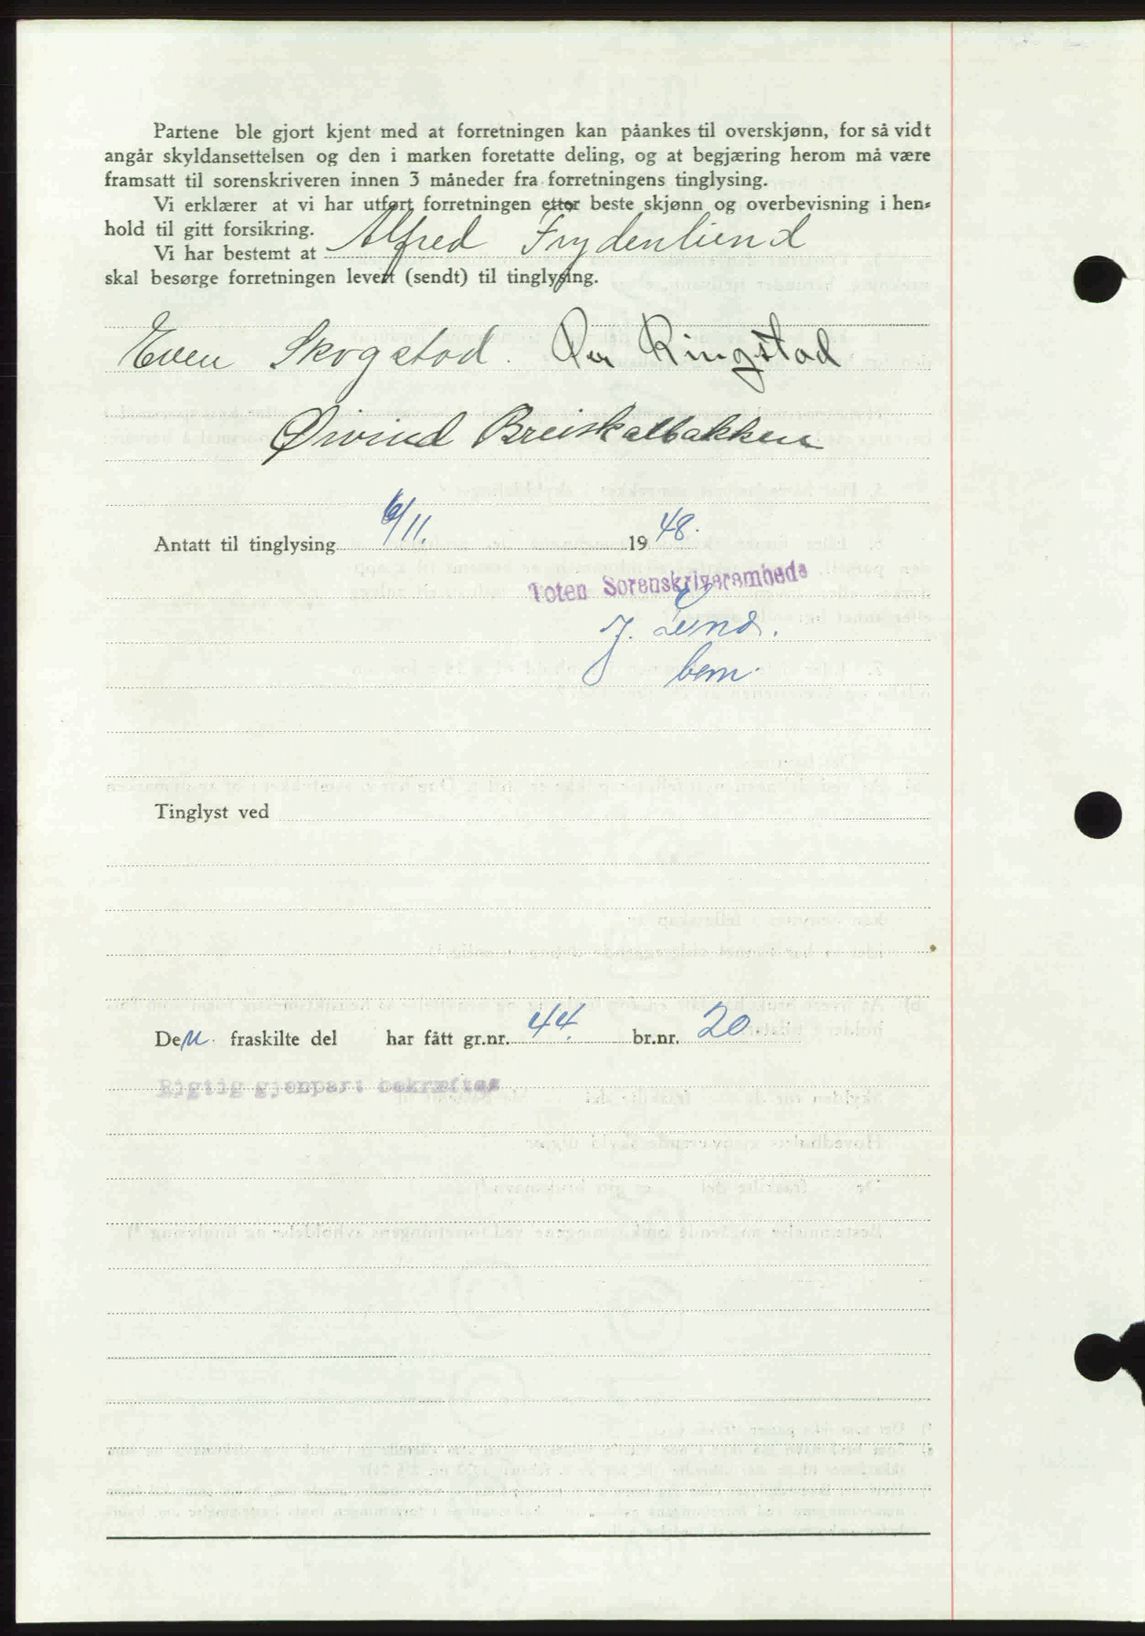 Partene ble gjort kjent med at forretningen kan påankes til overskjønn, for så vidt
angår skyldansettelsen og den i marken foretatte deling, og at begjæring herom må være
framsatt til sorenskriveren innen 3 måneder fra forretningens tinglysing.
Vi erklærer at vi har utført forretningen etter beste skjønn og overbevisning i hen-
hold til gitt forsikring.
Vi har bestemt at Alfred Frydenlund
skal besørge forretningen levert (sendt) til tinglysing.
Even Skogstad. Per Ringstad
Øivind Breiskallbakken
Antatt til tinglysing 6/11. 1948.
Toten Sorenskriverembede
J. Lund.
bem.
Tinglyst ved
Den fraskilte del har fått gr.nr. 44. br.nr. 20
Rigtig gjenpart bekræftes